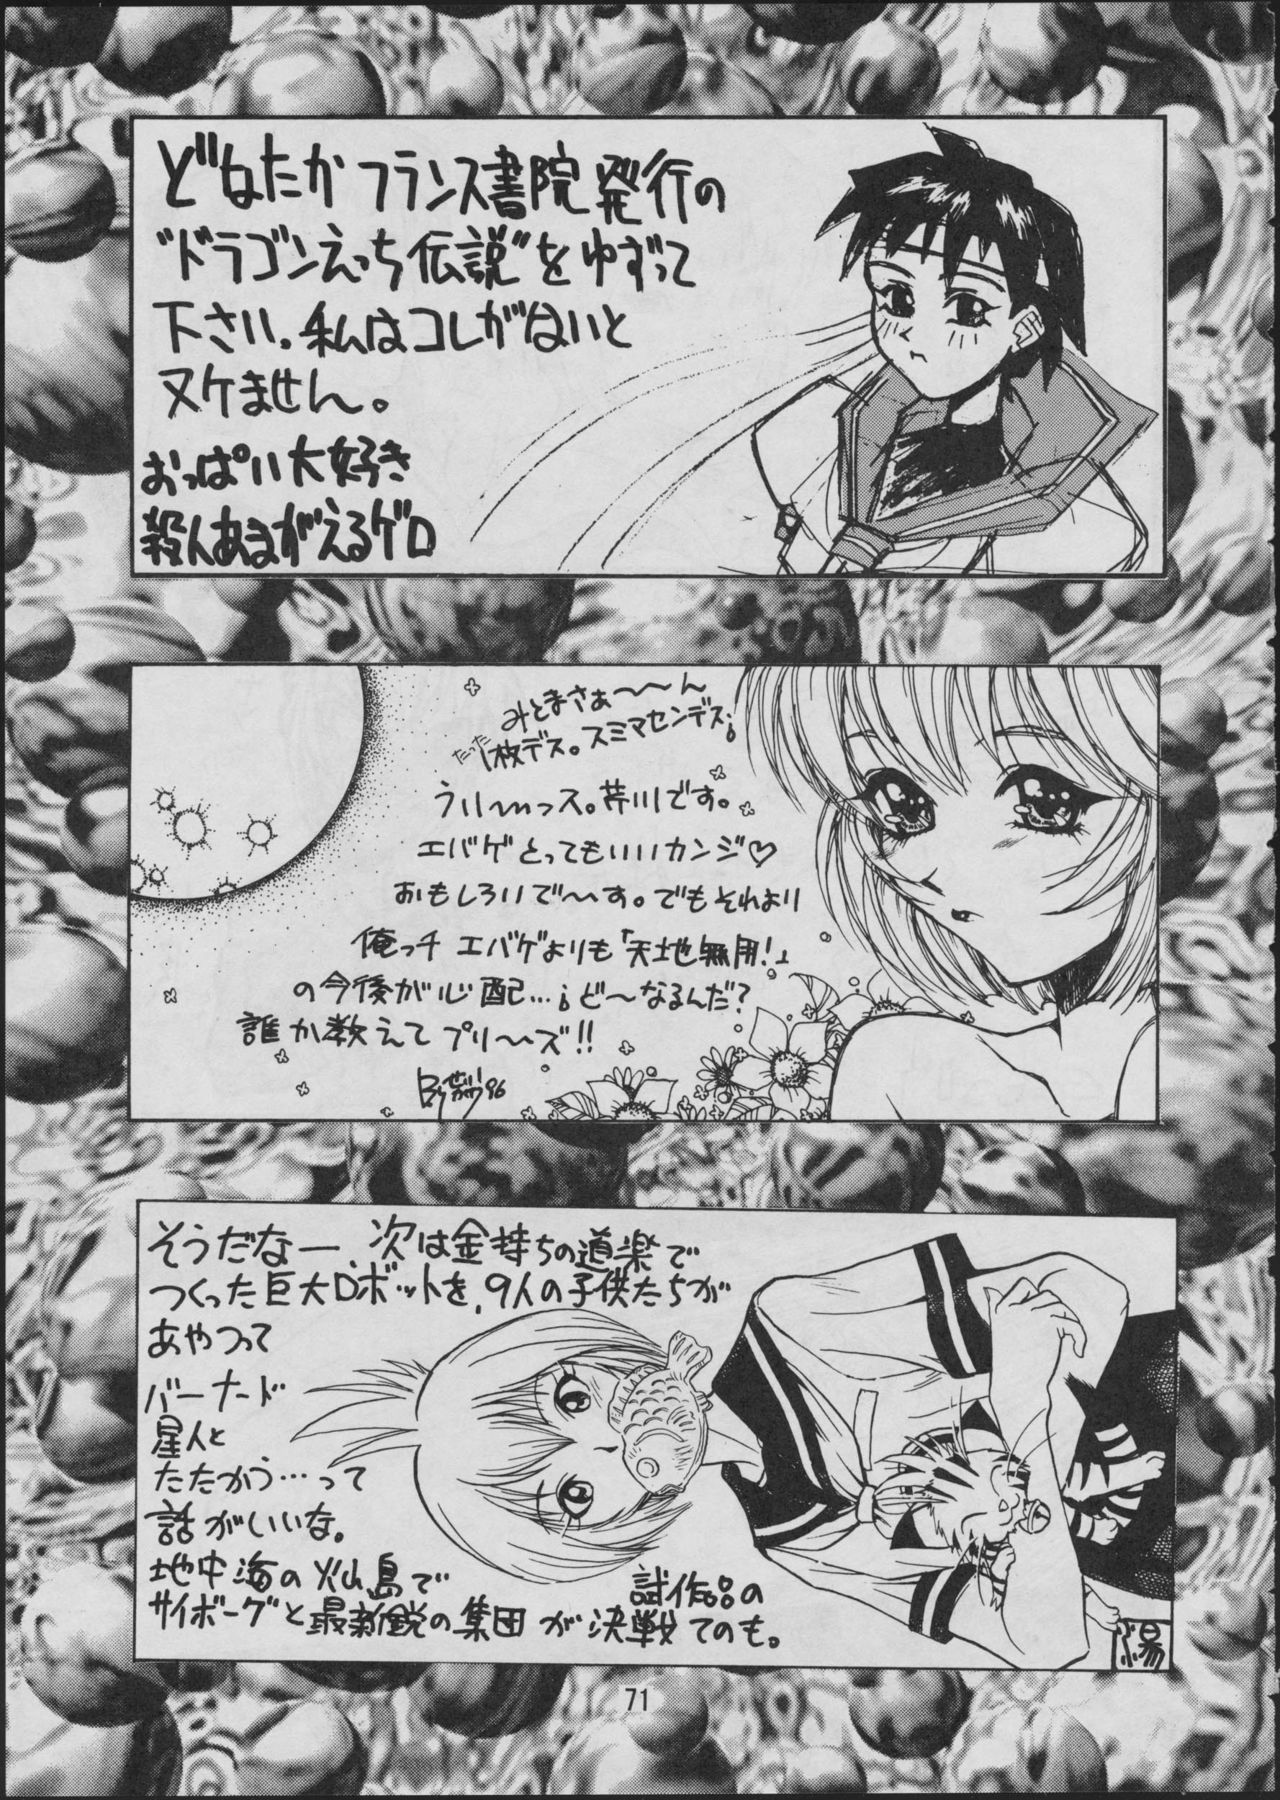 どなたか フランス書院 発行の
"ドラゴンえっち伝説"をゆずって
下さい。私はコレがないと
ヌケません。
おっぱい大好き
殺人あまがえるゲロ
みとまさぁ〜〜ん
たった1枚デス。スミマセンデス;
うい〜〜っス。芹川です。
エバゲとってもいいカンジ♡
おもしろいで〜す。でもそれより
俺っチ エバゲよりも「天地無用!」
の今後が心配…;ど〜なるんだ?
誰か教えて プリ〜〜ズ!!
そうだなー、次は金持ちの道楽で
つくった巨大ロボットを、9人の子供たちが
あやつって
バーナード
星人と
たたかう…って
話がいいな。
地中海の火山島で
試作品の
サイボーグと最新鋭の集団が決戦てのも。
71